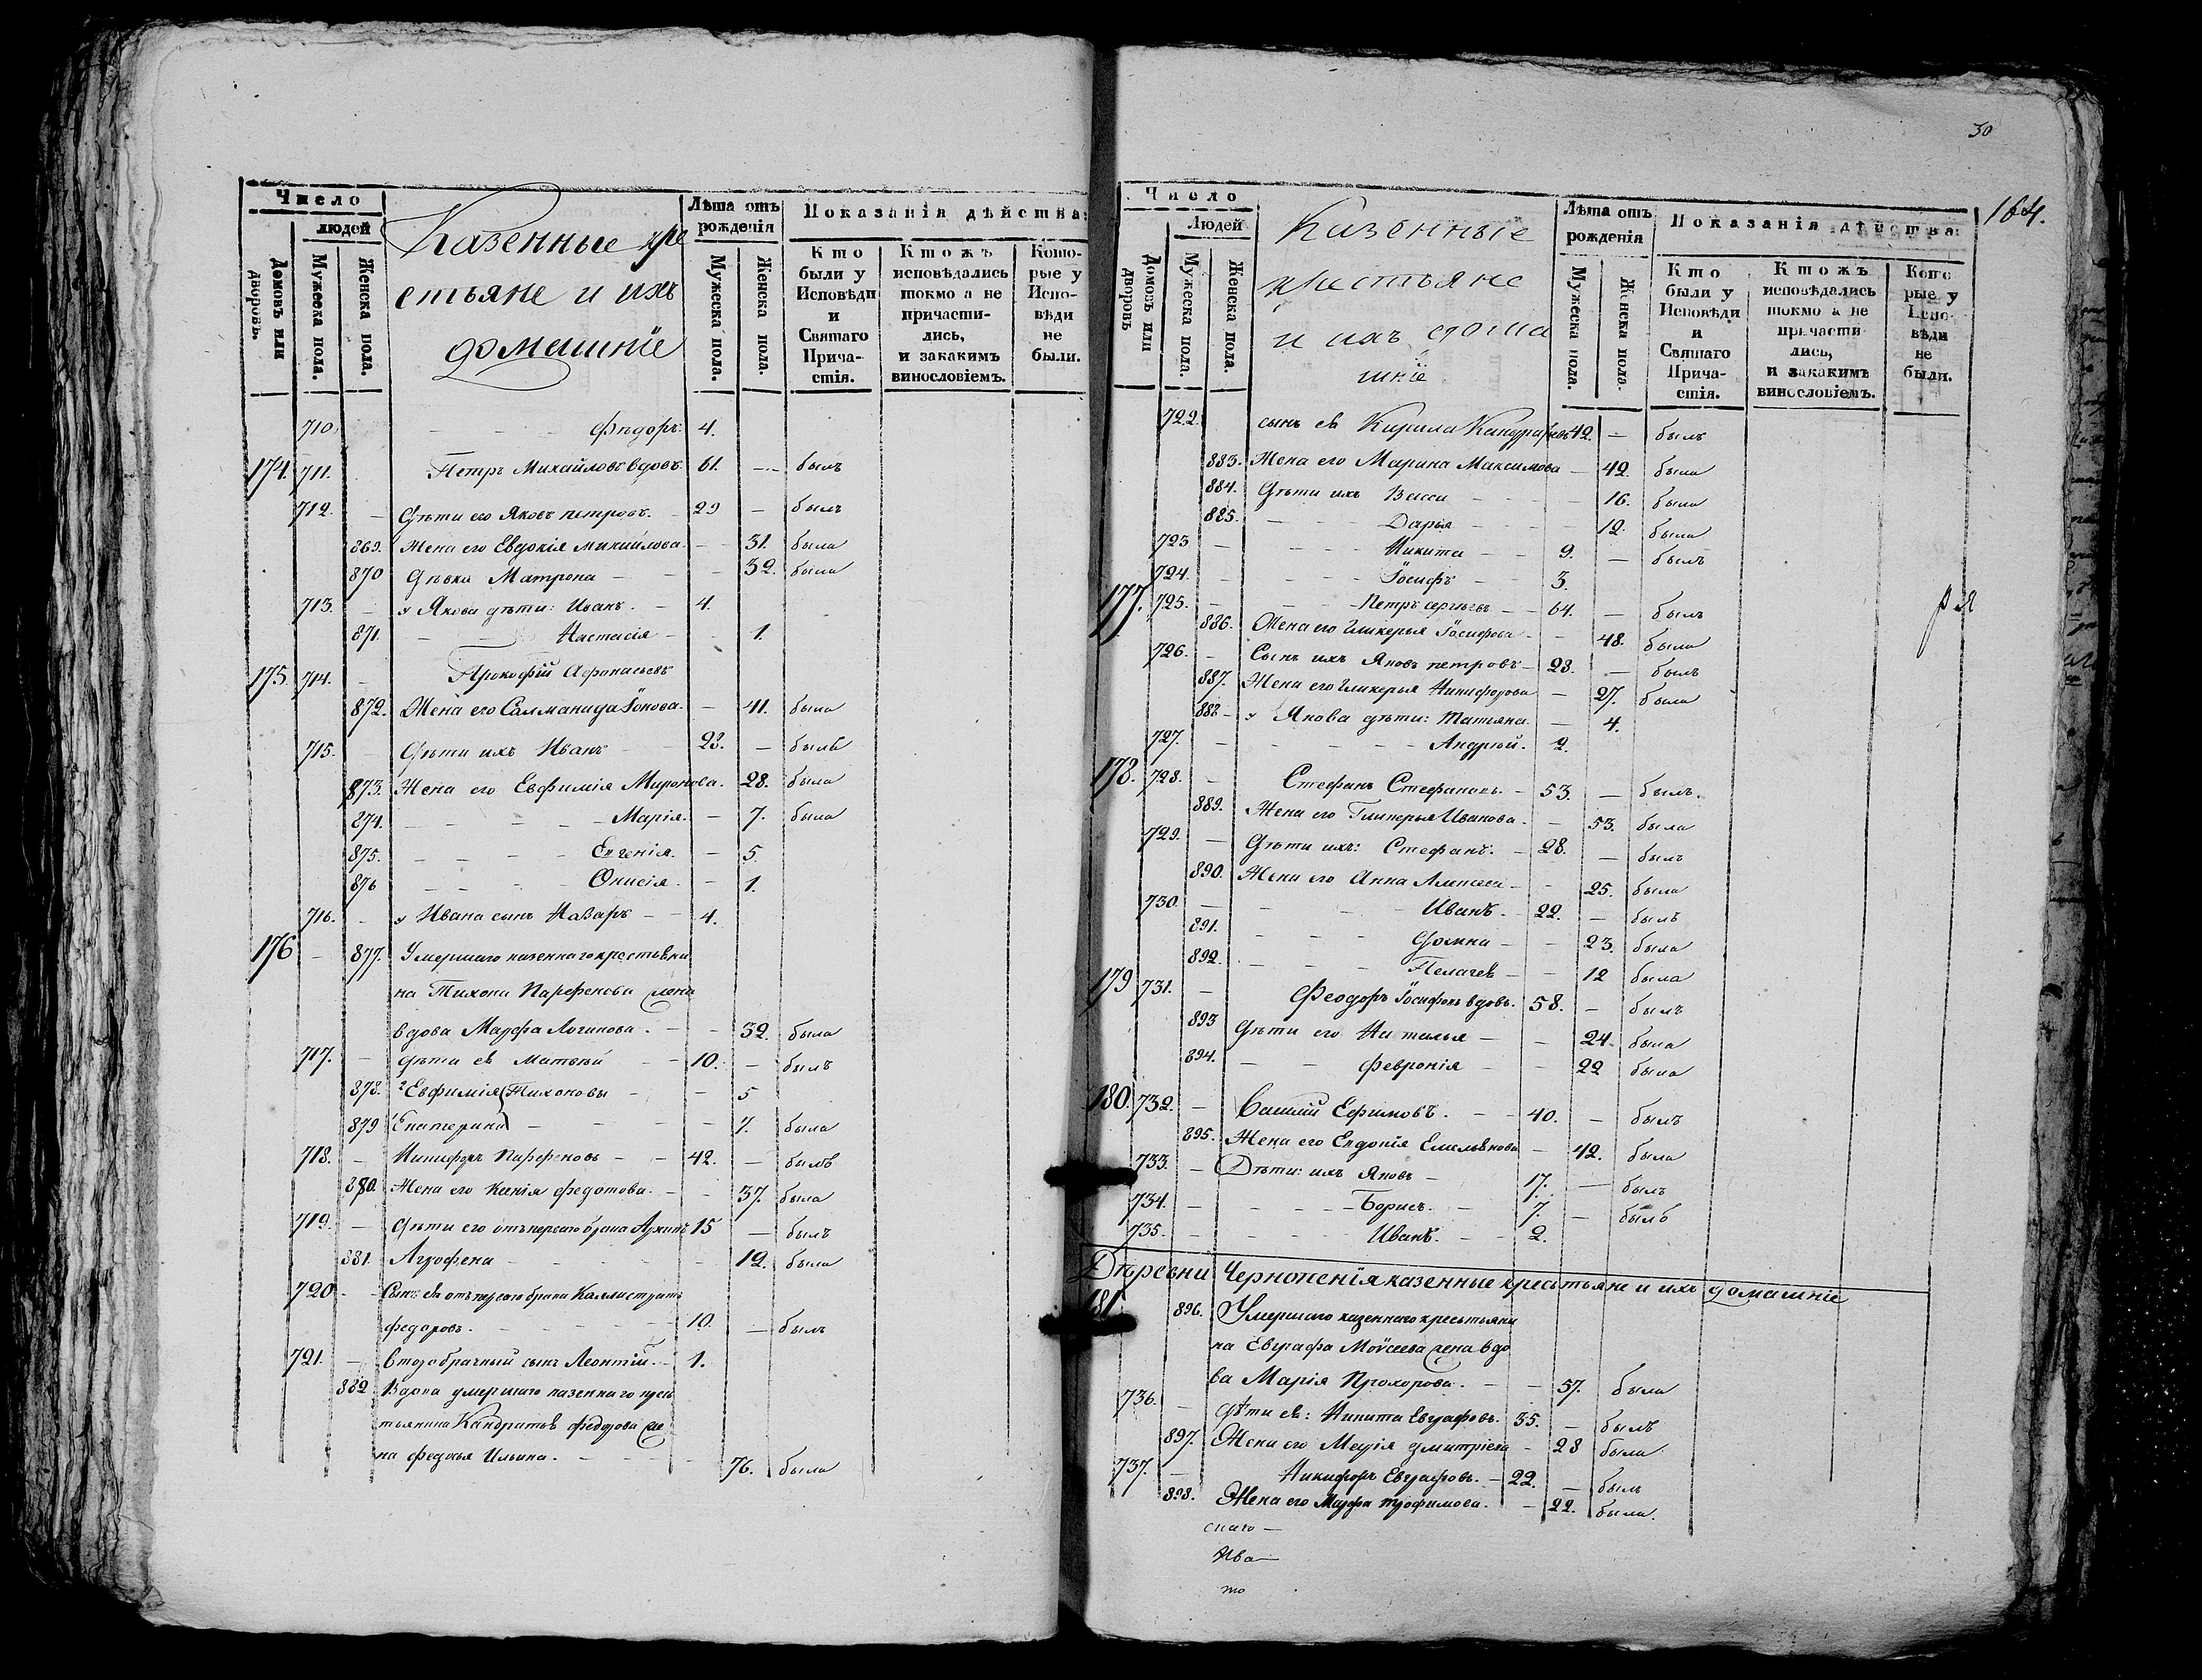 Число
людей
Домовъ или дворовъ.
Мужеска пола.
Женска пола.
Казенные кре
стьяне и ихъ
домашніе
Лѣта отъ рожденія
Мужеска пола.
Женска пола.
Показанія дѣйства:
Кто были у Исповѣди и Святаго Прича-стія.
Ктожъ исповѣдались токмо а не причасти-лись, и закакимъ винословіемъ.
Кото-рые у Испо-вѣди не были.
710. Фѣдоръ. 4.
174. 711. Петръ Михайловъ вдовъ. 61. — былъ
712. — Дѣти его Яковъ петровъ. 29 — былъ
869. Жена его Евдокія михайлова — 31. была
870 Дѣвка Матрона — 32. была
713. — у Якова дѣти: Иванъ. — 4.
871. Настасія — 1.
175. 714. — Прокофій Афонасьевъ
872. Жена его Салманида Іонова. — 41. была
715. — Дѣти ихъ Иванъ 23. — былъ
873. Жена его Евфимія Миронова. 28. была
874. Марія. — 7. была
875. Евгенія. — 5.
876 Онисія. — 1.
716. — у Ивана сынъ Назаръ — 4.
176 — 877. Умершаго казеннаго крестьяни
на Тихона Парфенова жена
вдова Марфа Логинова. — 32. была
717. — дѣти ея Матвѣй — 10. — былъ
878. 2 Евфимія Тихоновы — 5
879 1 Екатерина — 7. была
718. — Никифоръ Парфеновъ — 42. — былъ
880. Жена его Ксенія федотова. — 37. была
719. — Дѣти его отъ перваго брака Архипъ 15 — былъ
881. Агрофена — 12. была
720 — Сынъ ея отъ перваго брака Каллистратъ
федоровъ. — 10. — былъ
721. — Второбрачный сынъ Леонтій. — 1.
882 Вдова умершаго казеннаго крес
тьянина Кандратья федорова же
на федосья Ильина. — 76. была
30
164.
Число
Людей
Домовъ или дворовъ
Мужеска пола.
Женска пола.
Казенные
крестьяне
и ихъ дома
шніе
Лѣта отъ рожденія
Мужеска пола.
Женска пола.
Показанія дѣйства:
Кто были у Исповѣди и Святаго Прича-стія.
Ктожъ исповѣдались токмо а не причасти лись, и закакимъ винословіемъ.
Кото рые у Испо-вѣди не были.
722. сынъ ея Кирила Кандратьевъ 42. — былъ
883. Жена его Марина Максимова — 42. была
884. Дѣти ихъ — 16. была
885. Дарья — 12. была
723 — Никита — 9. — былъ
724. — Іосифъ — 3.
177. 725. — Петръ сергѣевъ — 64. — былъ
886. Жена его гликерья Іосифова — 48. была
726. — Сынъ ихъ Яковъ петровъ — 28. — былъ
887. Жена его гликерья Никифорова — 27. была
888 — у Якова дѣти: Татьяна. — 4.
727. — Андрей. 2.
178. 728. — Стефанъ Стефановъ. — 53. — былъ.
889. Жена его Гликерья Иванова. — 53. была
729. — Дѣти ихъ: Стефанъ. — 28. — былъ
890. Жена его Анна Алексѣева — 25. была
730. — Иванъ. — 22. — былъ
891. Фомна — 23. была
892. Пелагея — 12 была
179 731. — Феодоръ Іосифовъ вдовъ. 58. — былъ
893 Дѣти его Наталья — 24. была
894. февронія — 22 была
180. 732. — Василій Ефимовъ. — 40. — былъ
895. Жена его Евдокія Емельянова — 42. была
733. — Дѣти: ихъ Яковъ — 17. — былъ
734. — Борисъ. — 7. — былъ
735. — Иванъ. — 2.
Дѣревни Черноменія казенные кресьтьяне и ихъ домашніе
181. 896. Умершаго казеннаго кресьтьяни
на Евграфа Моѵсеева жена вдо
ва Марія Прохорова. — 57. была
736. — дѣти ея: Никита Евграфовъ. 35. — былъ
897. Жена его Марія дмитріева — 28 была
737. — Никифоръ Евграфовъ. — 22. — былъ
898. Жена его Марфа трофимова. — 22. была.
скаго —
Ива —
то